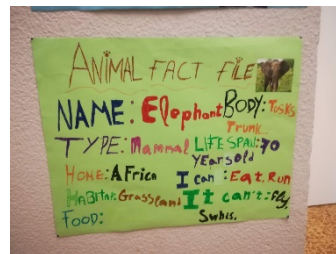 ANIMAL FACT FILE
NAME: Elephant BODY: Tusks
Trunk
TYPE: Mammal LIFESPAN: 70
Years old
HOME: AFrica I can: Eat, Run
HaBitat: Grassland It can't: Fly,
FOOD: Swhis.